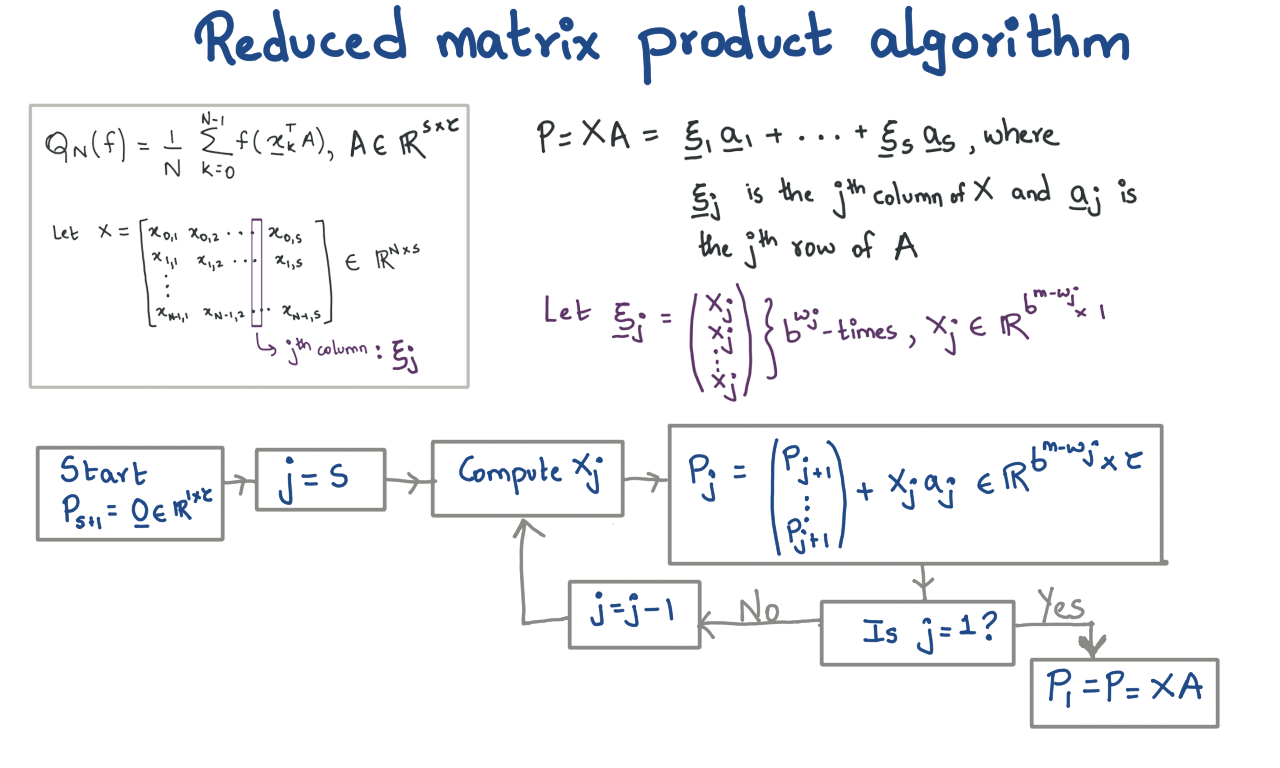 Reduced matrix product algorithm
Q_N(f) = 1/N ∑_{k=0}^{N-1} f(x_k^T A), A ∈ ℝ^{s×τ}
Let X = [x_{0,1} x_{0,2} ⋯ x_{0,s}
x_{1,1} x_{1,2} ⋯ x_{1,s}
⋮
x_{N-1,1} x_{N-1,2} ⋯ x_{N-1,s}] ∈ ℝ^{N×s}
↳ jth column : ξ_j
P = XA = ξ_1 a_1 + ... + ξ_s a_s, where
ξ_j is the jth column of X and a_j is
the jth row of A
Let ξ_j = (X_j X_j ⋮ X_j) } b^{w_j}-times, X_j ∈ ℝ^{b^{m-w_j} × 1}
Start
P_{s+1} = 0 ∈ ℝ^{1×τ}
j = s
Compute X_j
P_j = (P_{j+1} ⋮ P_{j+1}) + X_j a_j ∈ ℝ^{b^{m-w_j} × τ}
Is j = 1?
No
j = j-1
Yes
P_1 = P = XA